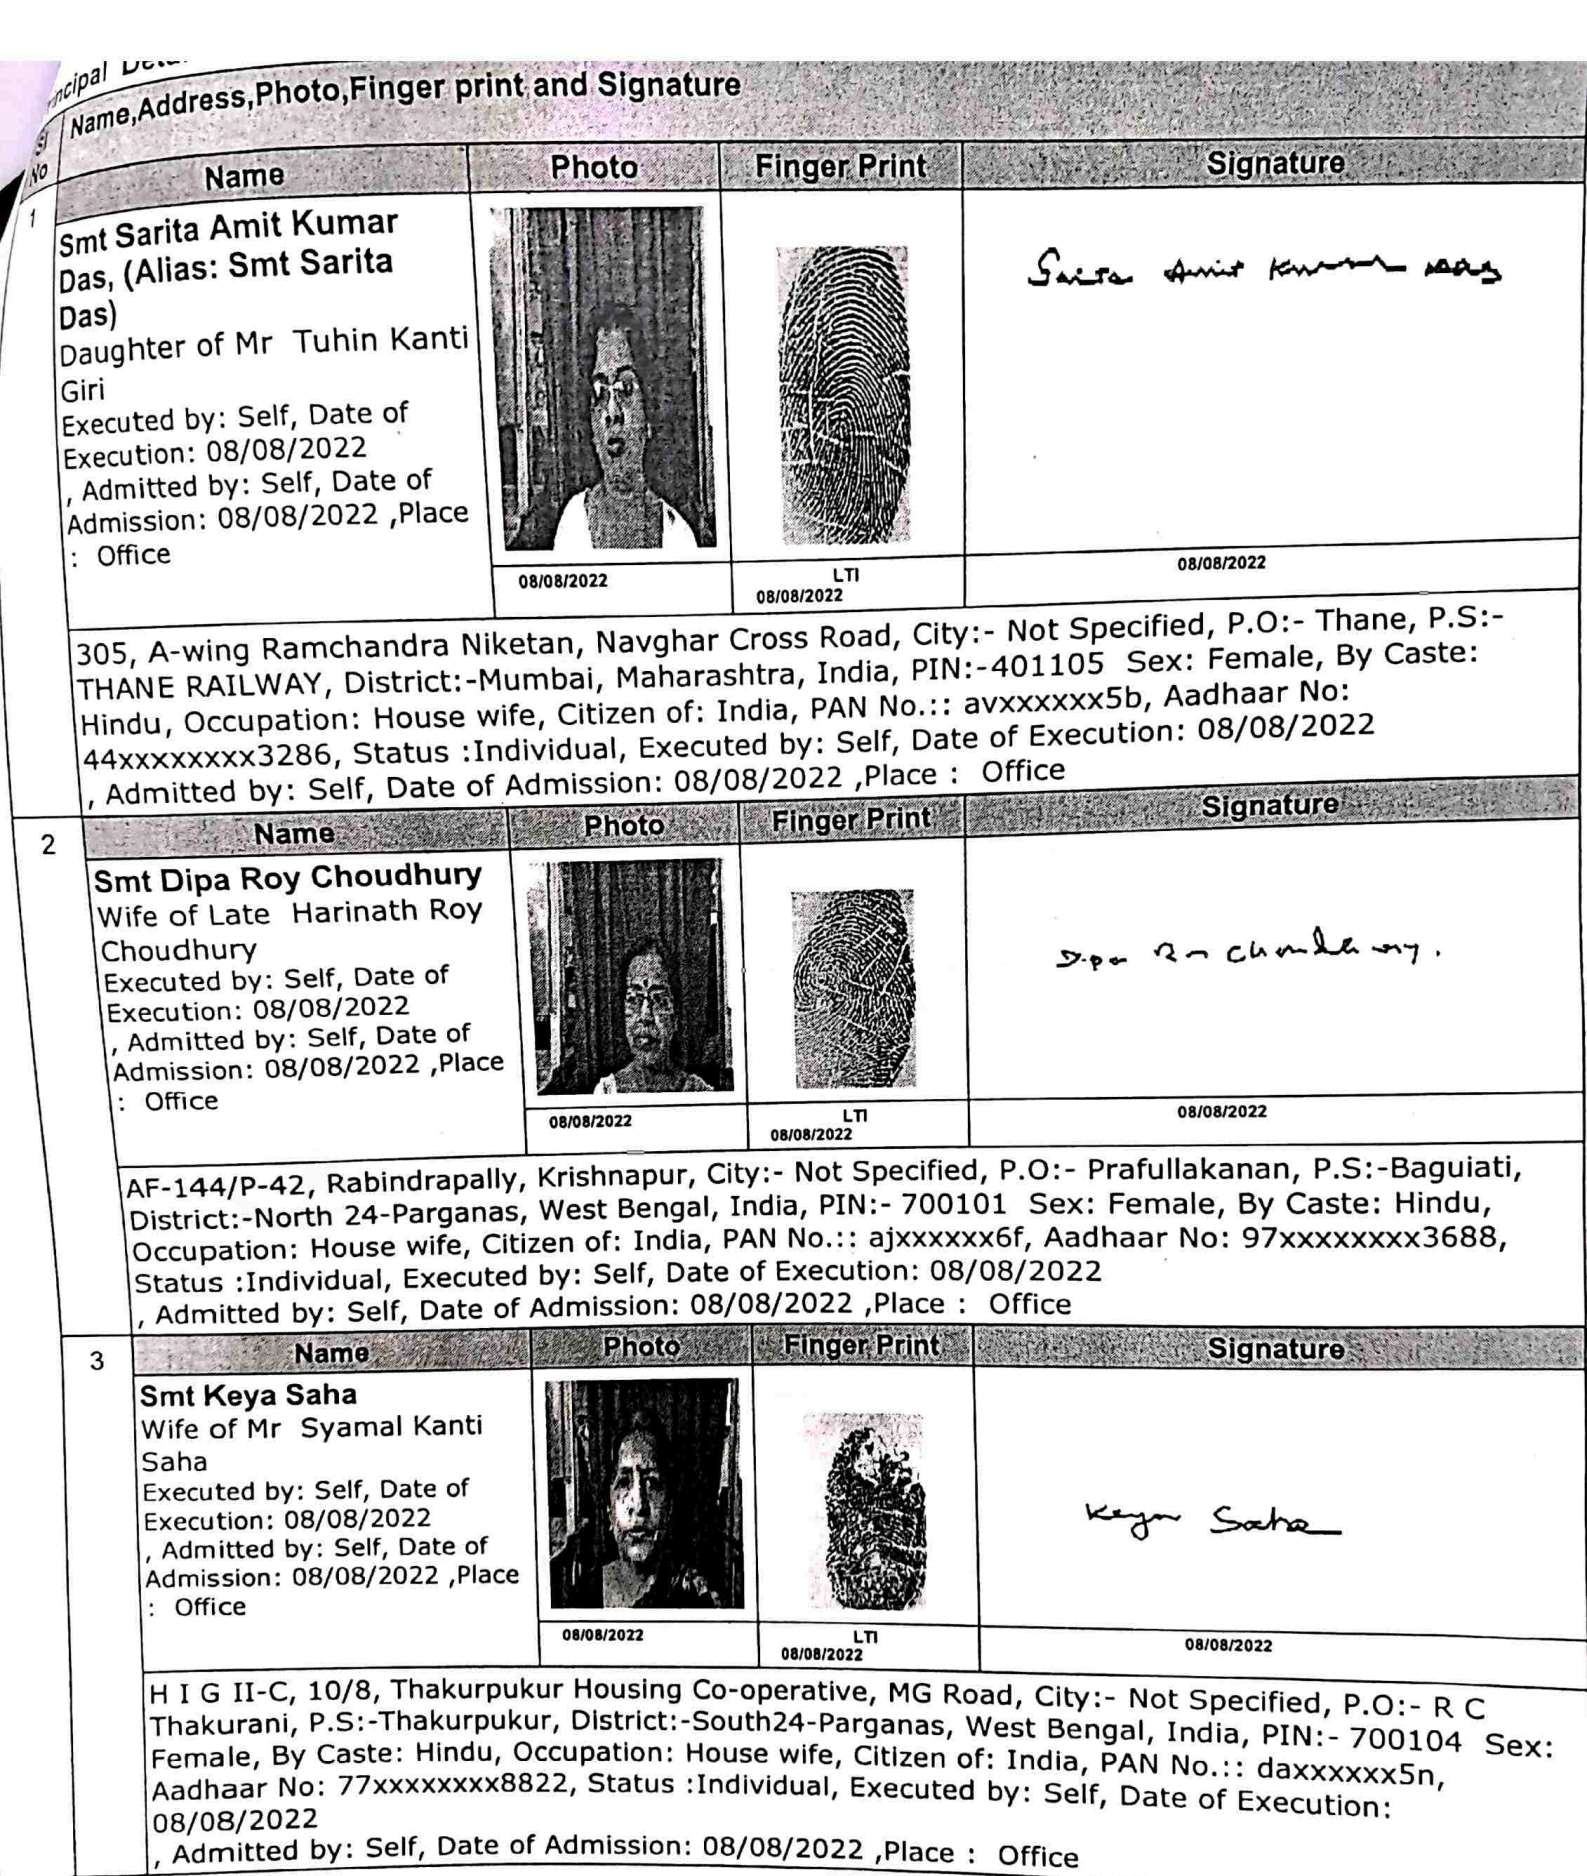 Name,Address,Photo,Finger print and Signature
No
Name Photo Finger Print Signature
1
Smt Sarita Amit Kumar
Das, (Alias: Smt Sarita
Das)
Daughter of Mr Tuhin Kanti
Giri
Executed by: Self, Date of
Execution: 08/08/2022
, Admitted by: Self, Date of
Admission: 08/08/2022 ,Place
: Office
08/08/2022
LTI
08/08/2022
08/08/2022
305, A-wing Ramchandra Niketan, Navghar Cross Road, City:- Not Specified, P.O:- Thane, P.S:-
THANE RAILWAY, District:-Mumbai, Maharashtra, India, PIN:-401105 Sex: Female, By Caste:
Hindu, Occupation: House wife, Citizen of: India, PAN No.:: avxxxxxx5b, Aadhaar No:
44xxxxxxxx3286, Status :Individual, Executed by: Self, Date of Execution: 08/08/2022
, Admitted by: Self, Date of Admission: 08/08/2022 ,Place : Office
2
Name Photo Finger Print Signature
Smt Dipa Roy Choudhury
Wife of Late Harinath Roy
Choudhury
Executed by: Self, Date of
Execution: 08/08/2022
, Admitted by: Self, Date of
Admission: 08/08/2022 ,Place
: Office
08/08/2022
LTI
08/08/2022
08/08/2022
AF-144/P-42, Rabindrapally, Krishnapur, City:- Not Specified, P.O:- Prafullakanan, P.S:-Baguiati,
District:-North 24-Parganas, West Bengal, India, PIN:- 700101 Sex: Female, By Caste: Hindu,
Occupation: House wife, Citizen of: India, PAN No.:: ajxxxxxx6f, Aadhaar No: 97xxxxxxxx3688,
Status :Individual, Executed by: Self, Date of Execution: 08/08/2022
, Admitted by: Self, Date of Admission: 08/08/2022 ,Place : Office
3
Name Photo Finger Print Signature
Smt Keya Saha
Wife of Mr Syamal Kanti
Saha
Executed by: Self, Date of
Execution: 08/08/2022
, Admitted by: Self, Date of
Admission: 08/08/2022 ,Place
: Office
Keya Saha
08/08/2022
LTI
08/08/2022
08/08/2022
H I G II-C, 10/8, Thakurpukur Housing Co-operative, MG Road, City:- Not Specified, P.O:- R C
Thakurani, P.S:-Thakurpukur, District:-South24-Parganas, West Bengal, India, PIN:- 700104 Sex:
Female, By Caste: Hindu, Occupation: House wife, Citizen of: India, PAN No.:: daxxxxxx5n,
Aadhaar No: 77xxxxxxxx8822, Status :Individual, Executed by: Self, Date of Execution:
08/08/2022
, Admitted by: Self, Date of Admission: 08/08/2022 ,Place : Office